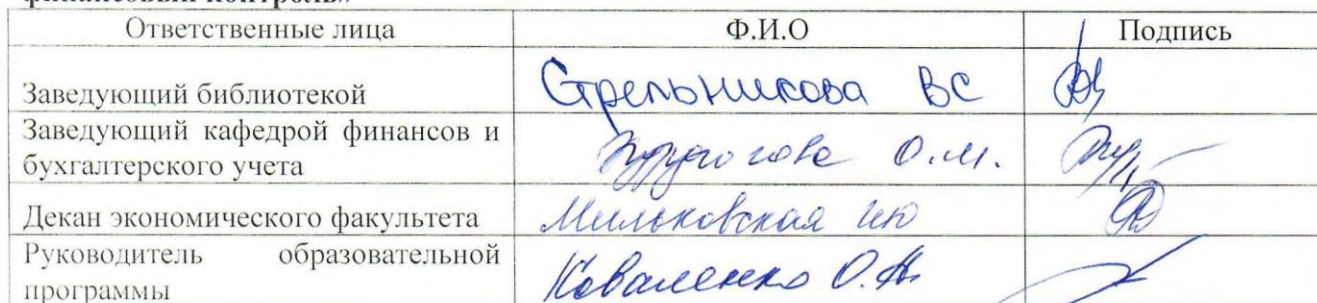 финансовый контроль»
Ответственные лица Ф.И.О Подпись
Заведующий библиотекой Стрельникова ВС
Заведующий кафедрой финансов и
бухгалтерского учета О.М.
Декан экономического факультета Мильковская ИЮ
Руководитель образовательной
программы Коваленко О.Н.